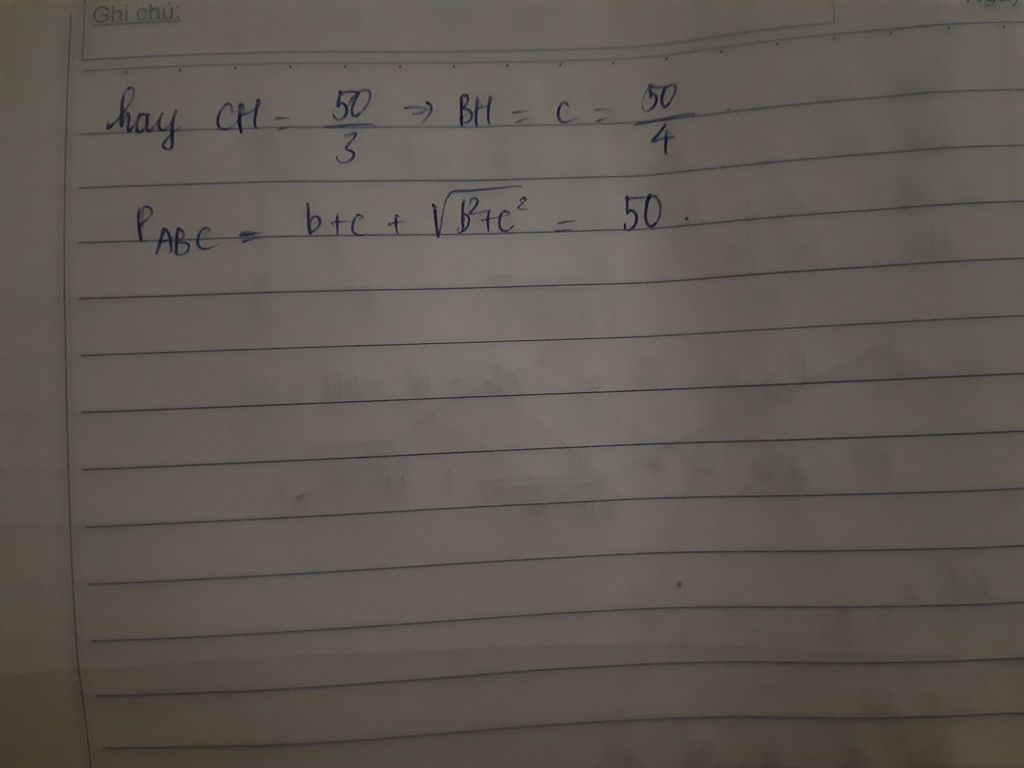 Ghi chú:
hay CH = 50/3 => BH = c = 50/4
P_ABC = b + c + √(b²+c²) = 50.